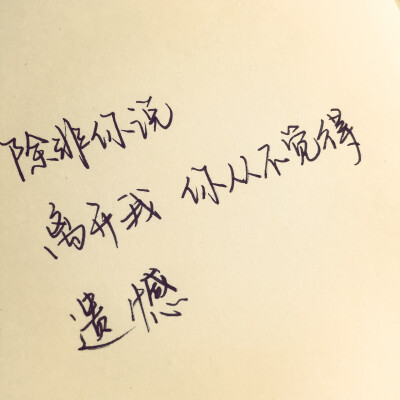 除非你说
离开我 你从不觉得
遗憾